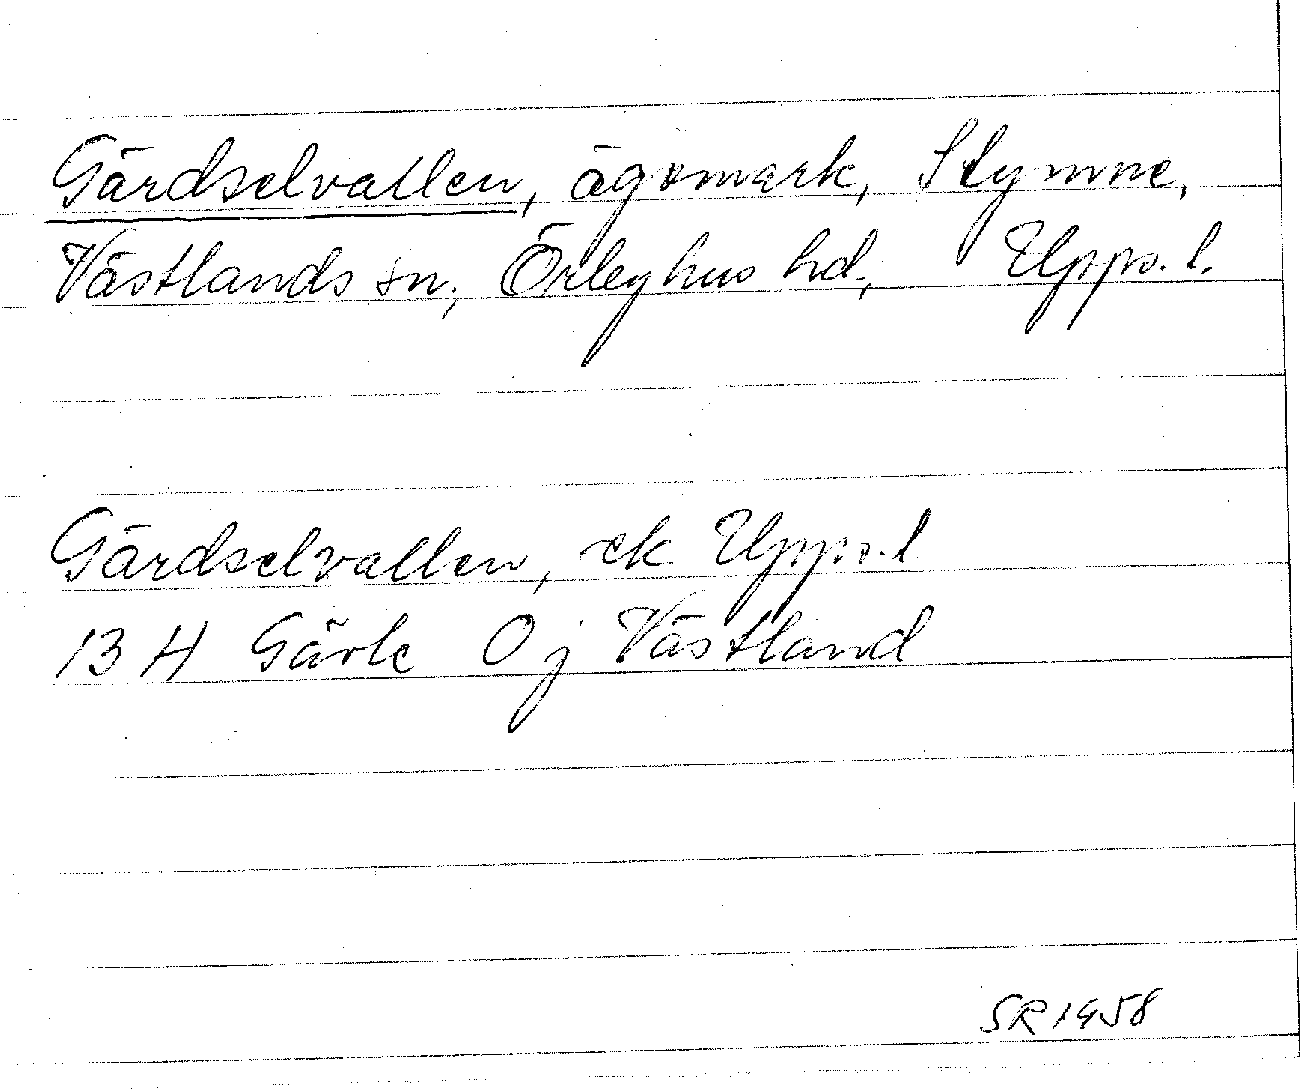 Gärdselvallen, ägomark, Stymne,
Västlands sn, Örbyhus hd, Upps. l.
Gärdselvallen, ek. Upps. l
13 H Gävle 0 j Västland
SR 1958